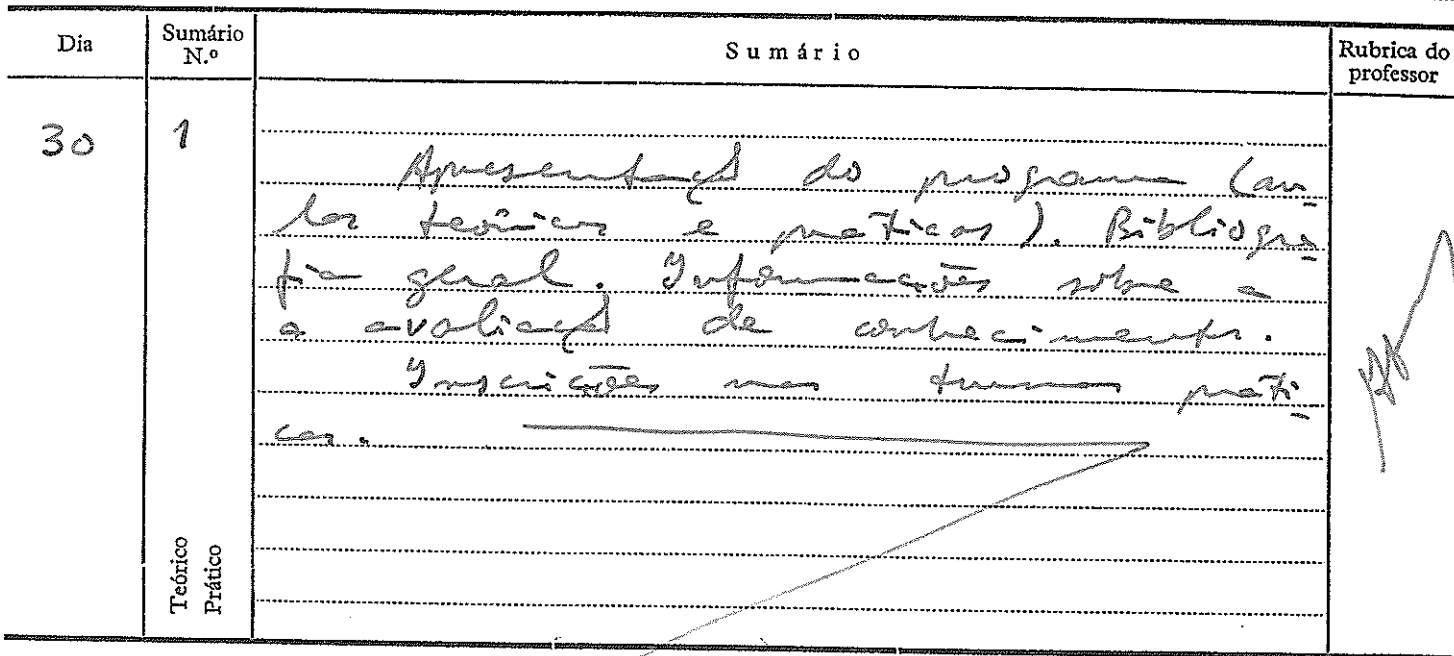 Dia Sumário N.º Sumário Rubrica do professor
30 1
Apresentação do programa (au
las teóricas e práticas). Bibliogra
fia geral. Informações sôbre a
a avaliação de conhecimentos.
Inscrições nas turmas práti
cas.
Teórico
Prático